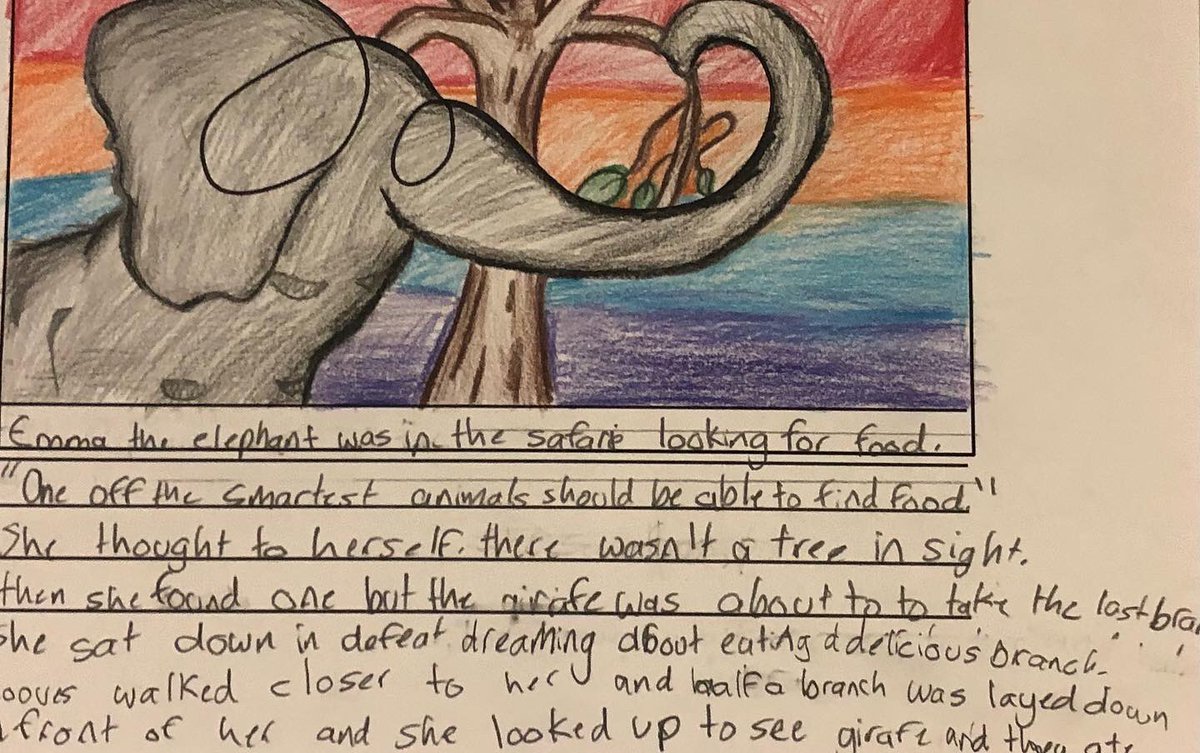 Emma the elephant was in the safarie looking for food.
"One off the smartest animals should be able to find food"
She thought to herself. there wasn't a tree in sight.
then she found one but the girafe was about to to take the last bra
She sat down in defeat dreaming about eating a delicious branch.
ooves walked closer to her and half a branch was layed down
front of her and she looked up to see girafe and they at